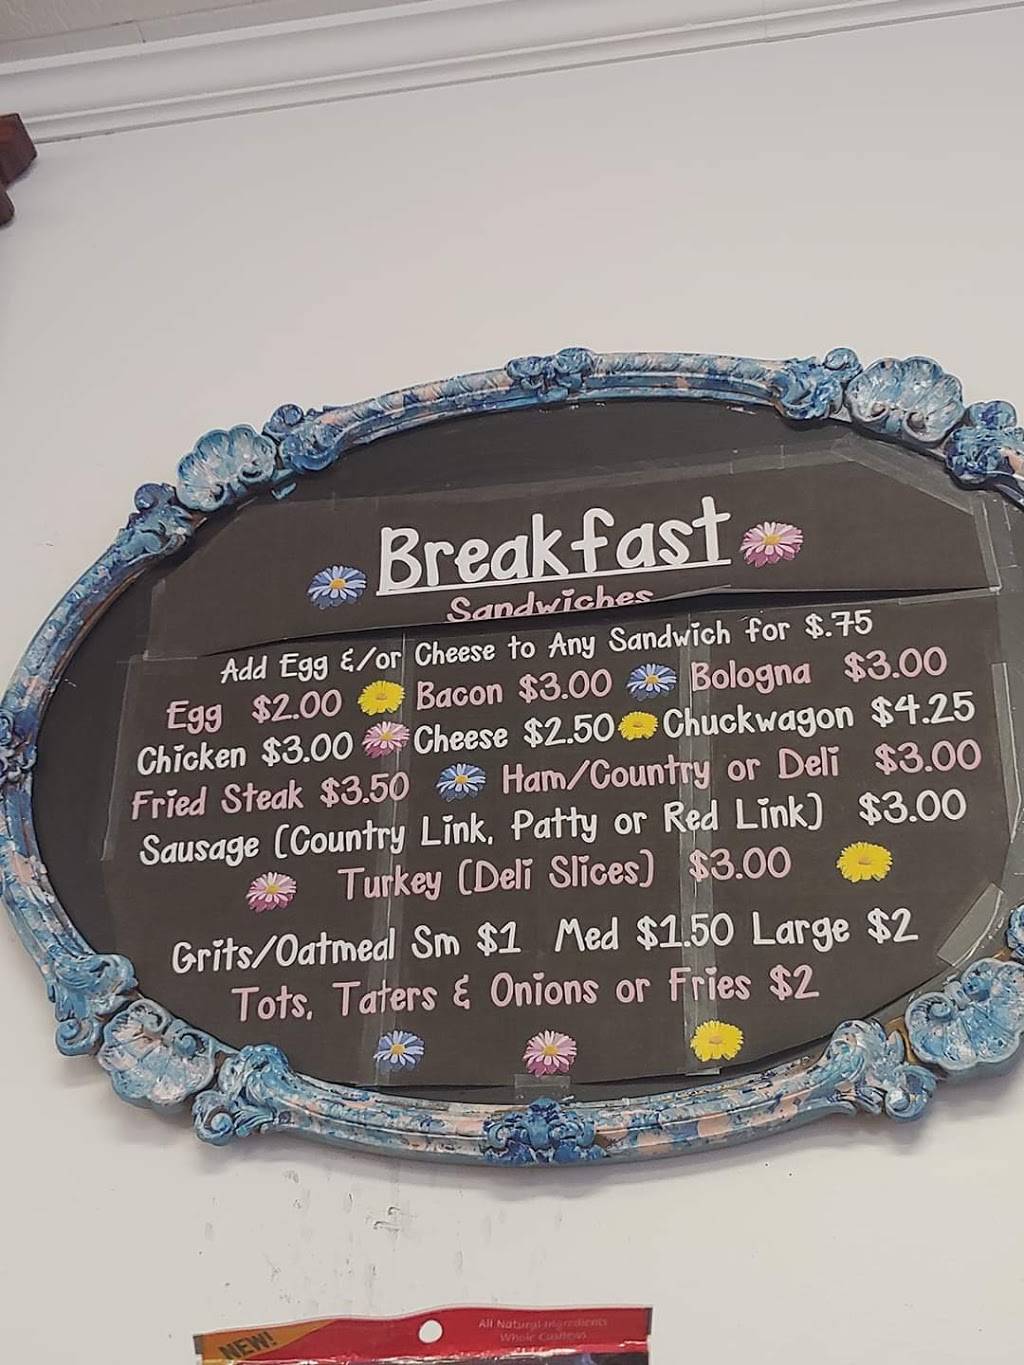 Breakfast
Sandwiches
Add Egg &/or Cheese to Any Sandwich for $.75
Egg $2.00 Bacon $3.00 Bologna $3.00
Chicken $3.00 Cheese $2.50 Chuckwagon $4.25
Fried Steak $3.50 Ham/Country or Deli $3.00
Sausage (Country Link, Patty or Red Link) $3.00
Turkey (Deli Slices) $3.00
Grits/Oatmeal Sm $1 Med $1.50 Large $2
Tots, Taters & Onions or Fries $2
NEW! All Natural Ingredients
Whole Cashews